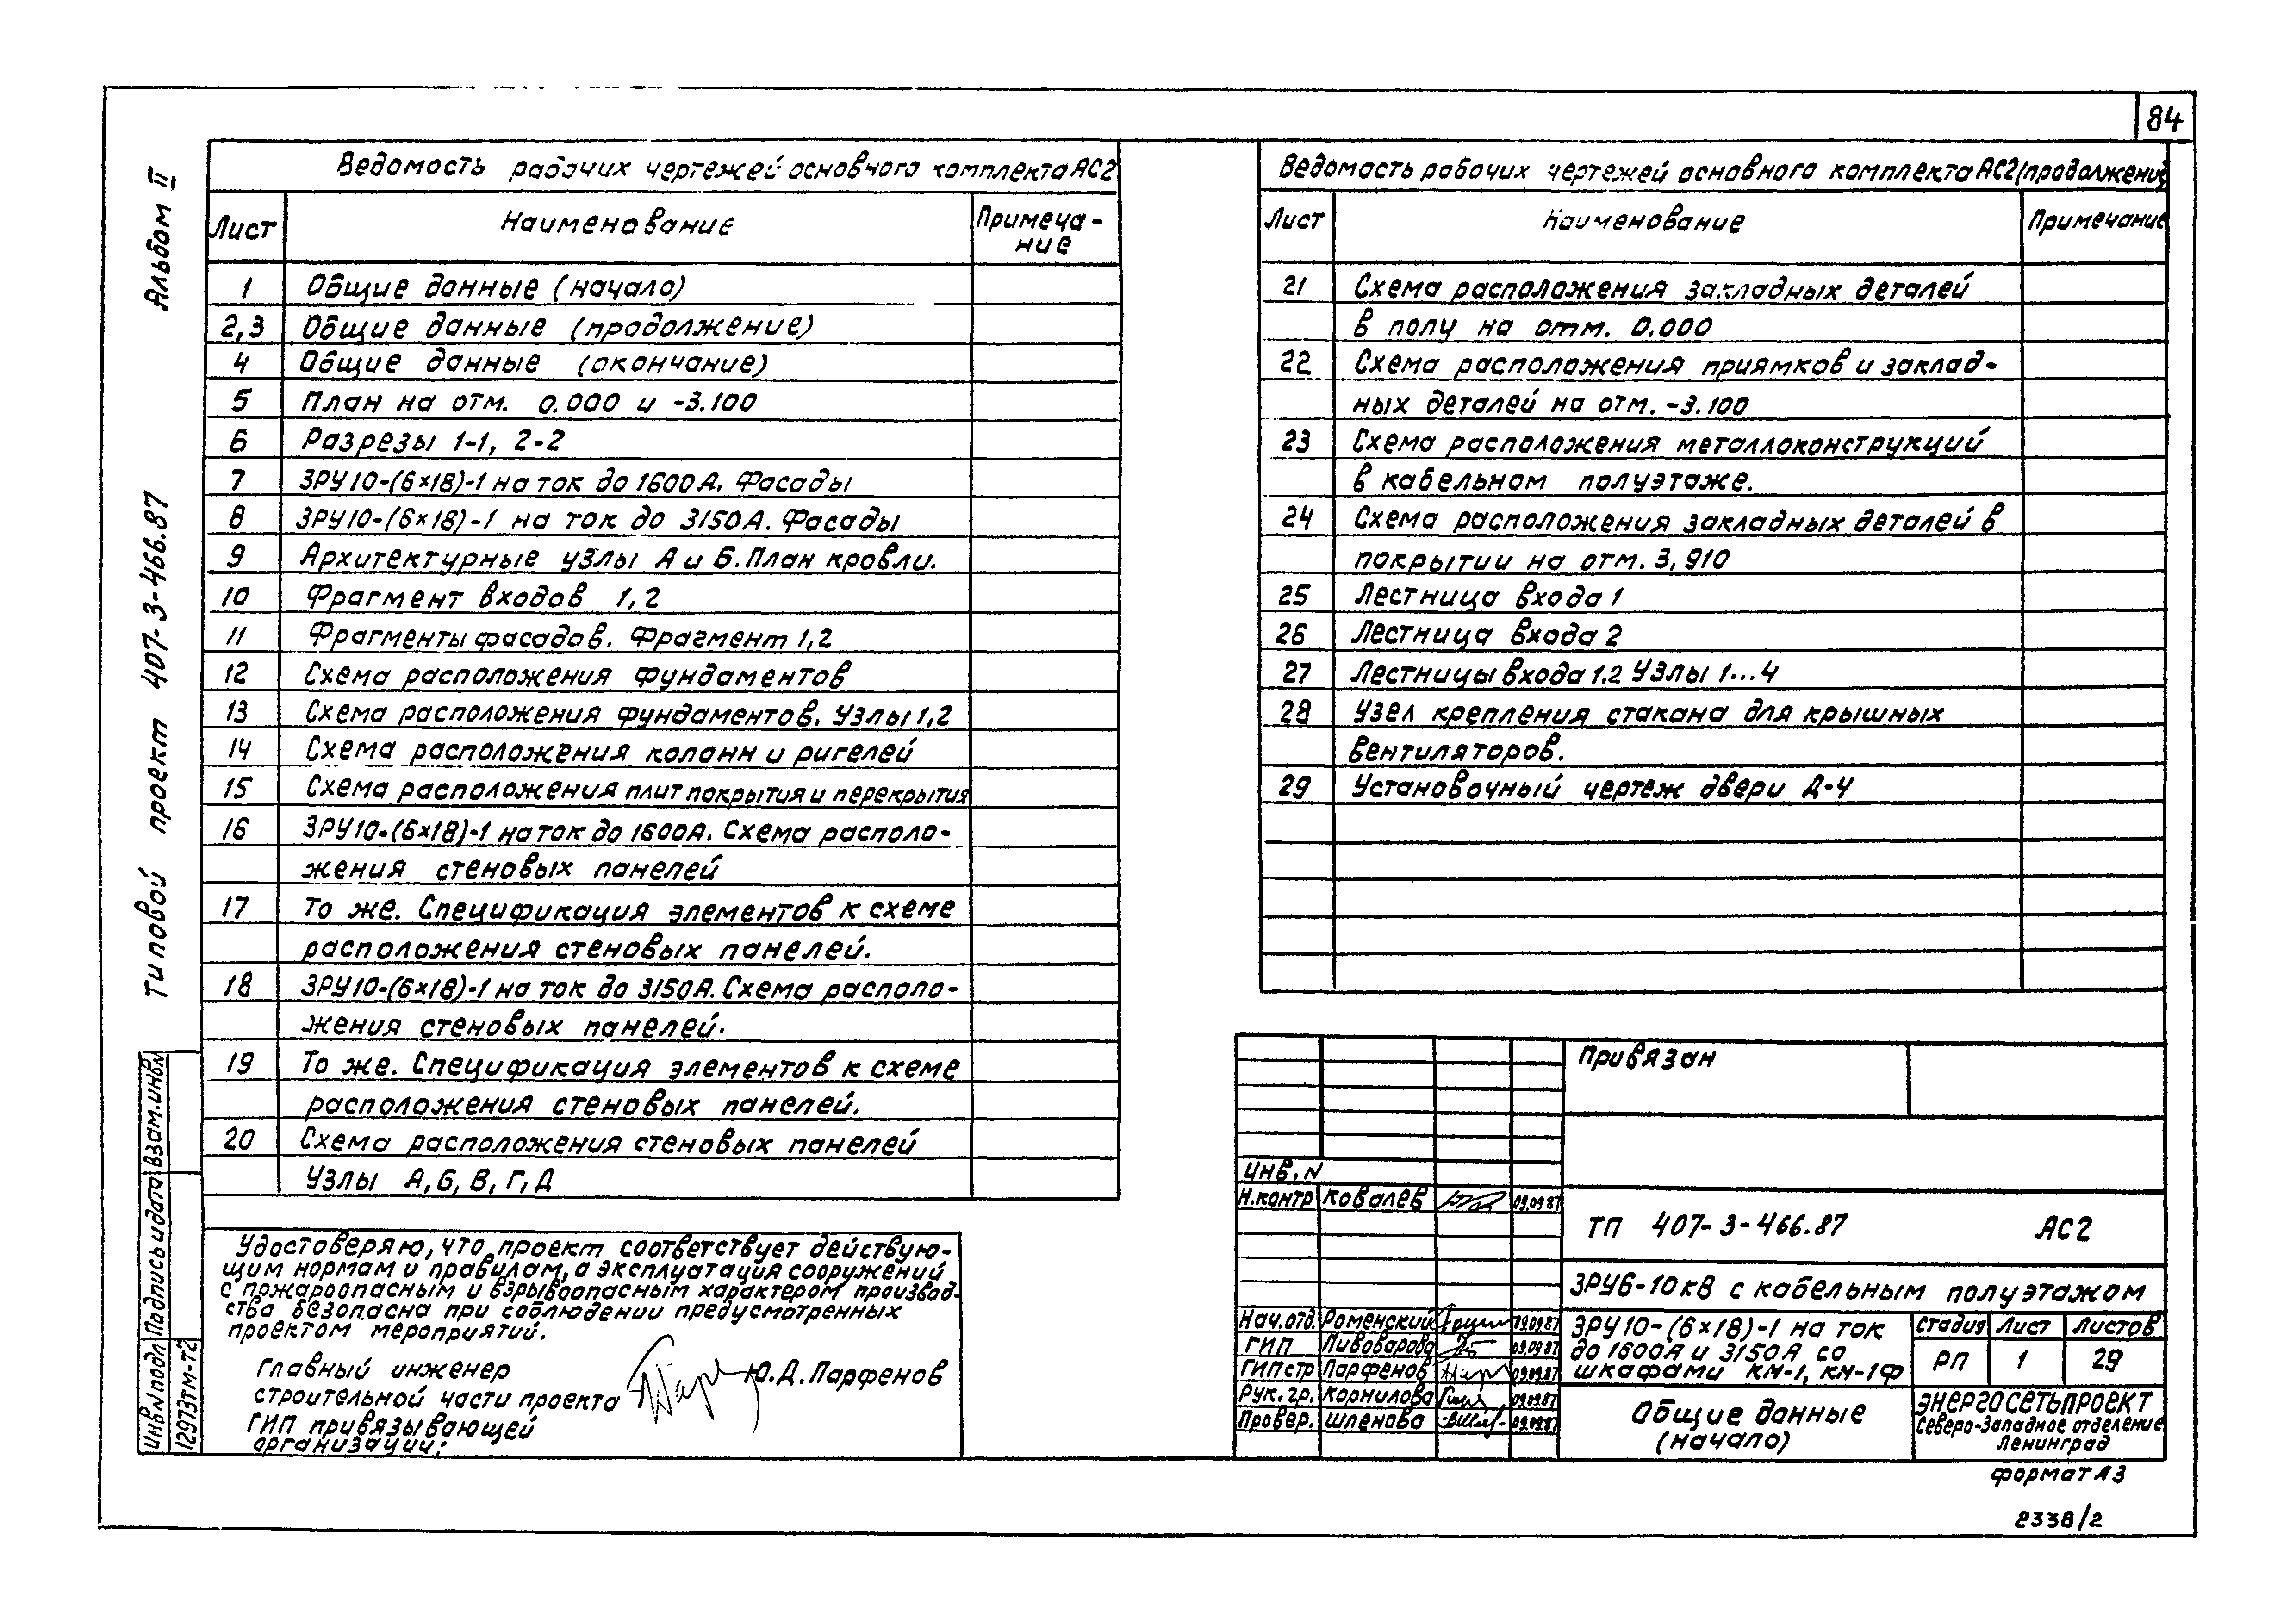 84
Альбом II
Типовой проект 407-3-466.87
Ведомость рабочих чертежей основного комплекта АС2
Лист Наименование Примеча-
ние
1 Общие данные (начало)
2,3 Общие данные (продолжение)
4 Общие данные (окончание)
5 План на отм. 0.000 и -3.100
6 Разрезы 1-1, 2-2
7 ЗРУ10-(6×18)-1 на ток до 1600А. Фасады
8 ЗРУ10-(6×18)-1 на ток до 3150А. Фасады
9 Архитектурные узлы А и Б. План кровли.
10 Фрагмент входов 1,2
11 Фрагменты фасадов. Фрагмент 1,2
12 Схема расположения фундаментов
13 Схема расположения фундаментов. Узлы 1,2
14 Схема расположения колонн и ригелей
15 Схема расположения плит покрытия и перекрытия
16 ЗРУ10-(6×18)-1 на ток до 1600А. Схема располо-
жения стеновых панелей
17 То же. Спецификация элементов к схеме
расположения стеновых панелей.
18 ЗРУ10-(6×18)-1 на ток до 3150А. Схема располо-
жения стеновых панелей.
19 То же. Спецификация элементов к схеме
расположения стеновых панелей.
20 Схема расположения стеновых панелей
Узлы А,Б,В,Г,Д
Ведомость рабочих чертежей основного комплекта АС2(продолжение)
Лист Наименование Примечание
21 Схема расположения закладных деталей
в полу на отм. 0.000
22 Схема расположения приямков и заклад-
ных деталей на отм. -3.100
23 Схема расположения металлоконструкций
в кабельном полуэтаже.
24 Схема расположения закладных деталей в
покрытии на отм. 3,910
25 Лестница входа 1
26 Лестница входа 2
27 Лестницы входа 1.2 Узлы 1...4
28 Узел крепления стакана для крышных
вентиляторов.
29 Установочный чертеж двери Д-4
Удостоверяю, что проект соответствует действую-
щим нормам и правилам, а эксплуатация сооружений
с пожароопасным и взрывоопасным характером производ-
ства безопасна при соблюдении предусмотренных
проектом мероприятий.
Главный инженер
строительной части проекта Ю.Д.Парфенов
ГИП привязывающей
организации:
Инв N подл Подпись и дата Взам.инв N
12973тм-т2
Привязан
инв. N
Н.контр Ковалев 09.09.87
ТП 407-3-466.87 АС2
ЗРУ6-10кВ с кабельным полуэтажом
Нач.отд. Роменский 09.09.87
ГИП Пивоварова 09.09.87
ГИПстр Парфенов 09.09.87
Рук.гр. Корнилова 09.09.87
Провер. Шленова 09.09.87
ЗРУ10-(6×18)-1 на ток
до 1600А и 3150А со
шкафами КМ-1, КМ-1Ф
Стадия Лист Листов
РП 1 29
Общие данные
(начало)
ЭНЕРГОСЕТЬПРОЕКТ
Северо-Западное отделение
Ленинград
формат А3
2338/2